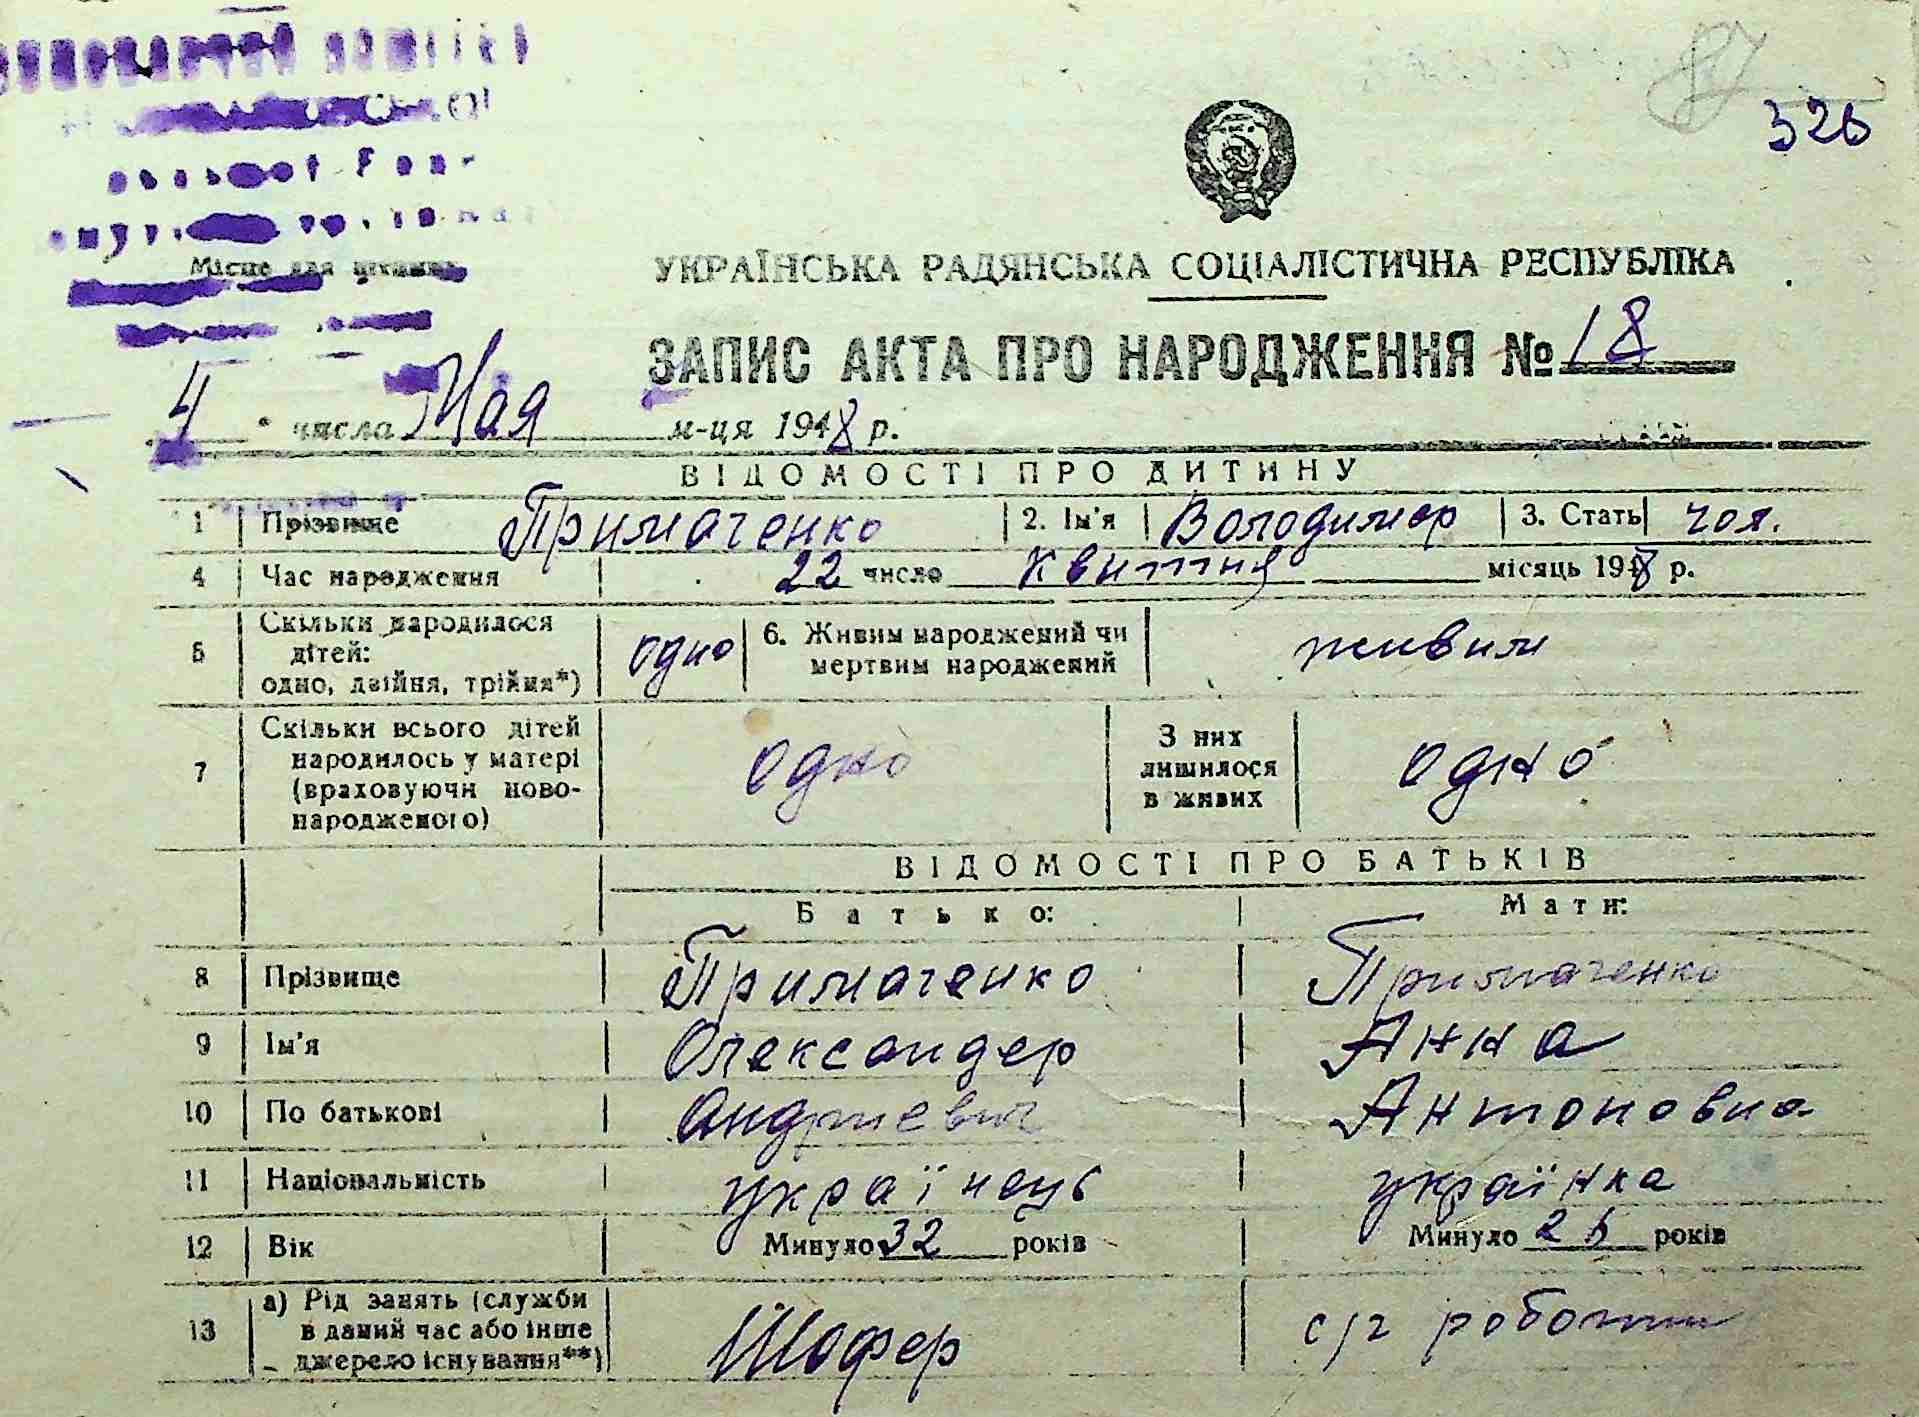 87
326
Місце для штампа
УКРАЇНСЬКА РАДЯНСЬКА СОЦІАЛІСТИЧНА РЕСПУБЛІКА
ЗАПИС АКТА ПРО НАРОДЖЕННЯ № 18
4 " числа Мая м-ця 1948 р.
ВІДОМОСТІ ПРО ДИТИНУ
1 Прізвище Примаченко 2. Ім'я Володимер 3. Стать чол.
4 Час народження 22 число квитня місяць 1948 р.
5 Скільки народилося дітей: одно, двійня, трійня*) одно 6. Живим народжений чи мертвим народжений живим
7 Скільки всього дітей народилось у матері (враховуючи новонародженого) одно З них лишилося в живих одно
ВІДОМОСТІ ПРО БАТЬКІВ
Батько: Мати:
8 Прізвище Примаченко Примаченко
9 Ім'я Олександер Анна
10 По батькові Андриевич Антоновна
11 Національність українець українка
12 Вік Минуло 32 років Минуло 2 років
13 а) Рід занять (служби в даний час або інше джерело існування**) Шофер с/г роботи